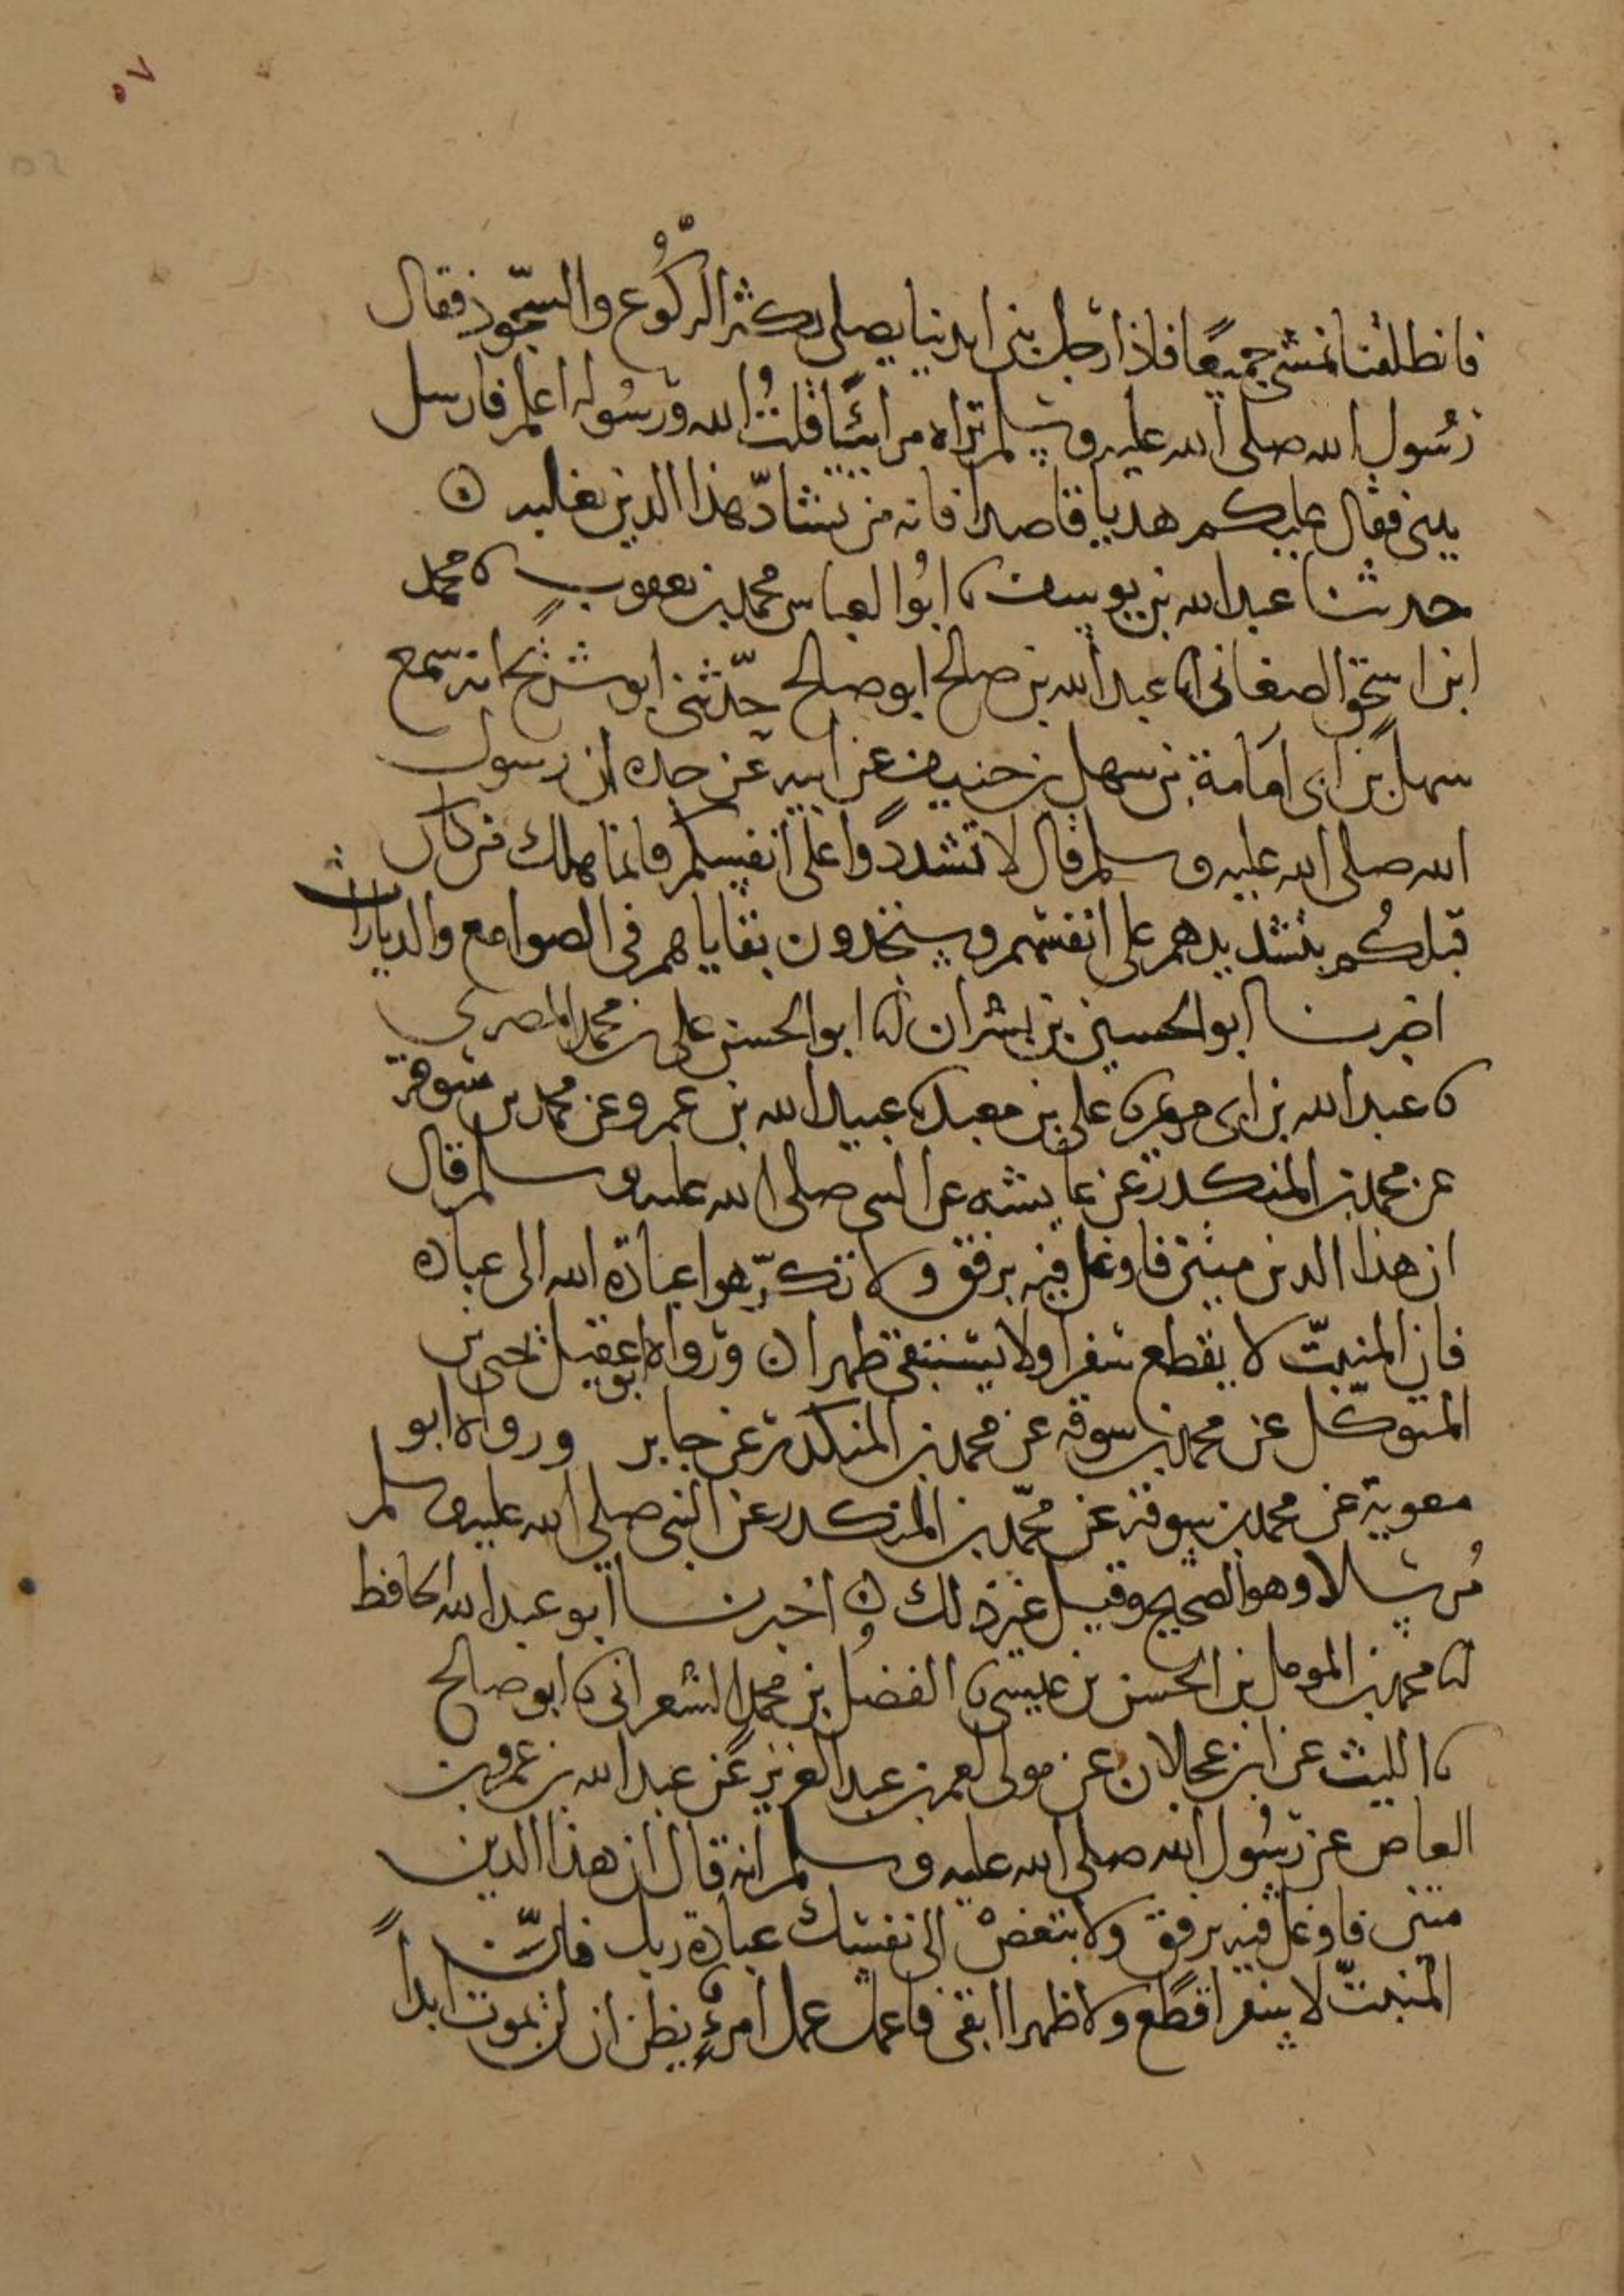 ٥٧
فانطلقنا نمشي جميعًا فاذا رجل بين ايدينا يصلي يكثر الركُوع والسجود فقال
رسُول الله صلى الله عليه وسلم تراه مرائيًا قلتُ الله ورسُوله اعلم فارسل
يدي فقال عليكم هديا قاصدا فانه من يشادّ هذا الدين يغلبه
حدثنا عبد الله بن يوسف نا ابُو العباس محمد بن يعقوب نا محمد
ابن اسحق الصغاني انا عبد الله بن صالح ابو صالح حدّثني ابو شريح انه سمع
سهل بن ابي امامة بن سهل بن حنيف عن ابيه عن جده ان رسول
الله صلى الله عليه وسلم قال لا تشددوا على انفسكم فانما هلك من كان
قبلكُم بتشديدهم على انفسهم وستجدون بقاياهم في الصوامع والديارات
اخبرنا ابو الحسين بن بشران انا ابو الحسن علي بن محمد المصري
نا عبد الله بن ابي مريم نا علي بن معبد نا عبيد الله بن عمرو عن محمد بن سوقة
عن محمد بن المنكدر عن عايشه عن النبي صلى الله عليه وسلم قال
ان هذا الدين متين فاوغل فيه برفق ولا تكرّهوا عبادة الله الى عباده
فان المنبتّ لا يقطع سفرا ولا يستبقي ظهرا ورواه ابو عقيل يحيى بن
المتوكّل عن محمد بن سوقه عن محمد بن المنكدر عن جابر ورواه ابو
معوية عن محمد بن سوقة عن محمّد بن المنكدر عن النبي صلى الله عليه وسلم
مُرسلا وهو الصحيح وقيل غير ذلك اخبرنا ابو عبد الله الحافظ
انا محمد بن المومل بن الحسن بن عيسى نا الفضل بن محمد الشعراني نا ابو صالح
نا الليث عن ابن عجلان عن مولى لعمر بن عبد العزيز عن عبد الله بن عمرو بن
العاص عن رسُول الله صلى الله عليه وسلم انه قال ان هذا الدين
متين فاوغل فيه برفق ولا تبغضْ الى نفسك عبادة ربك فانّ
المنبتّ لا سفرا قطع ولا ظهرا ابقى فاعمل عمل امرءٍ يظن ان لن يموت ابداً